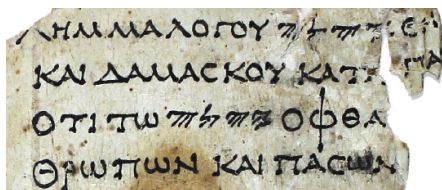 ΛΗΜΜΑΛΟΓΟΥ 𐤉𐤄𐤅𐤄 Ε
ΚΑΙ ΔΑΜΑΣΚΟΥ ΚΑΤΑΠΑ
ΟΤΙ ΤΩ 𐤉𐤄𐤅𐤄 ΟΦΘΑ
ΘΡΩΠΩΝ ΚΑΙ ΠΑΣΩΝ